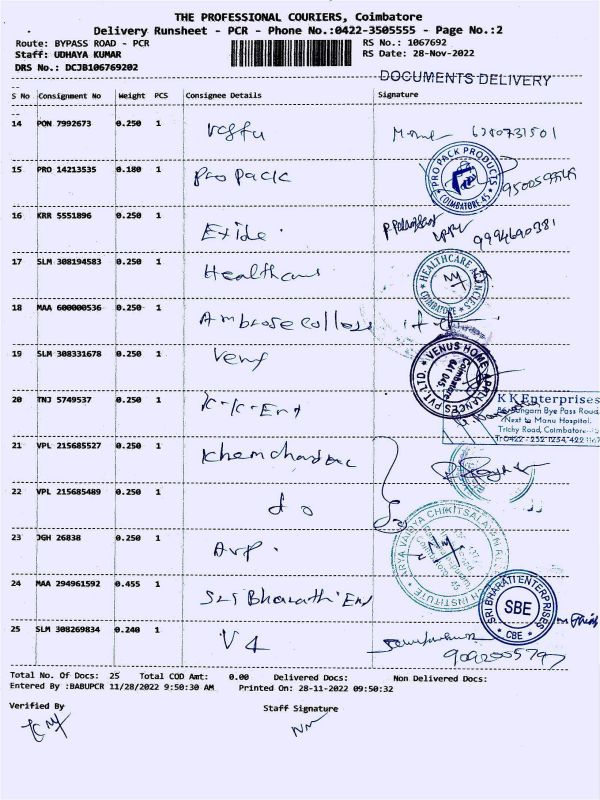 THE PROFESSIONAL COURIERS, Coimbatore
Delivery Runsheet - PCR - Phone No.:0422-3505555 - Page No.:2
Route: BYPASS ROAD - PCR RS No.: 1067692
Staff: UDHAYA KUMAR RS Date: 28-Nov-2022
DRS No.: DCJB106769202
DOCUMENTS DELIVERY
S No Consignment No Weight PCS Consignee Details Signature
14 PON 7992673 0.250 1
15 PRO 14213535 0.180 1 Pro pack
PRO PACK PRODUCTS COIMBATORE 45
16 KRR 5551896 0.250 1 Exide.
9994690381
17 SLM 308194583 0.250 1 Healthcare
HEALTHCARE AGENCIES COIMBATORE
18 MAA 600000536 0.250 1 Ambrose
19 SLM 308331678 0.250 1 Venus
VENUS HOME APPLIANCES PVT. LTD. Coimbatore 641 045
20 TNJ 5749537 0.250 1 K-K-Ent
KKEnterprises
Bye Pass Road,
Next to Manu Hospital,
Trichy Road, Coimbatore
21 VPL 215685527 0.250 1
22 VPL 215685489 0.250 1 do
23 JGH 26838 0.250 1 Avp.
ARYA VAIDYA CHIKITSALAYAM INSTITUTE
24 MAA 294961592 0.455 1 Sri Bharathi Ent
SRI BHARATI ENTERPRISES SBE CBE
25 SLM 308269834 0.240 1 V4
Total No. Of Docs: 25 Total COD Amt: 0.00 Delivered Docs: Non Delivered Docs:
Entered By :BABUPCR 11/28/2022 9:50:30 AM Printed On: 28-11-2022 09:50:32
Verified By Staff Signature